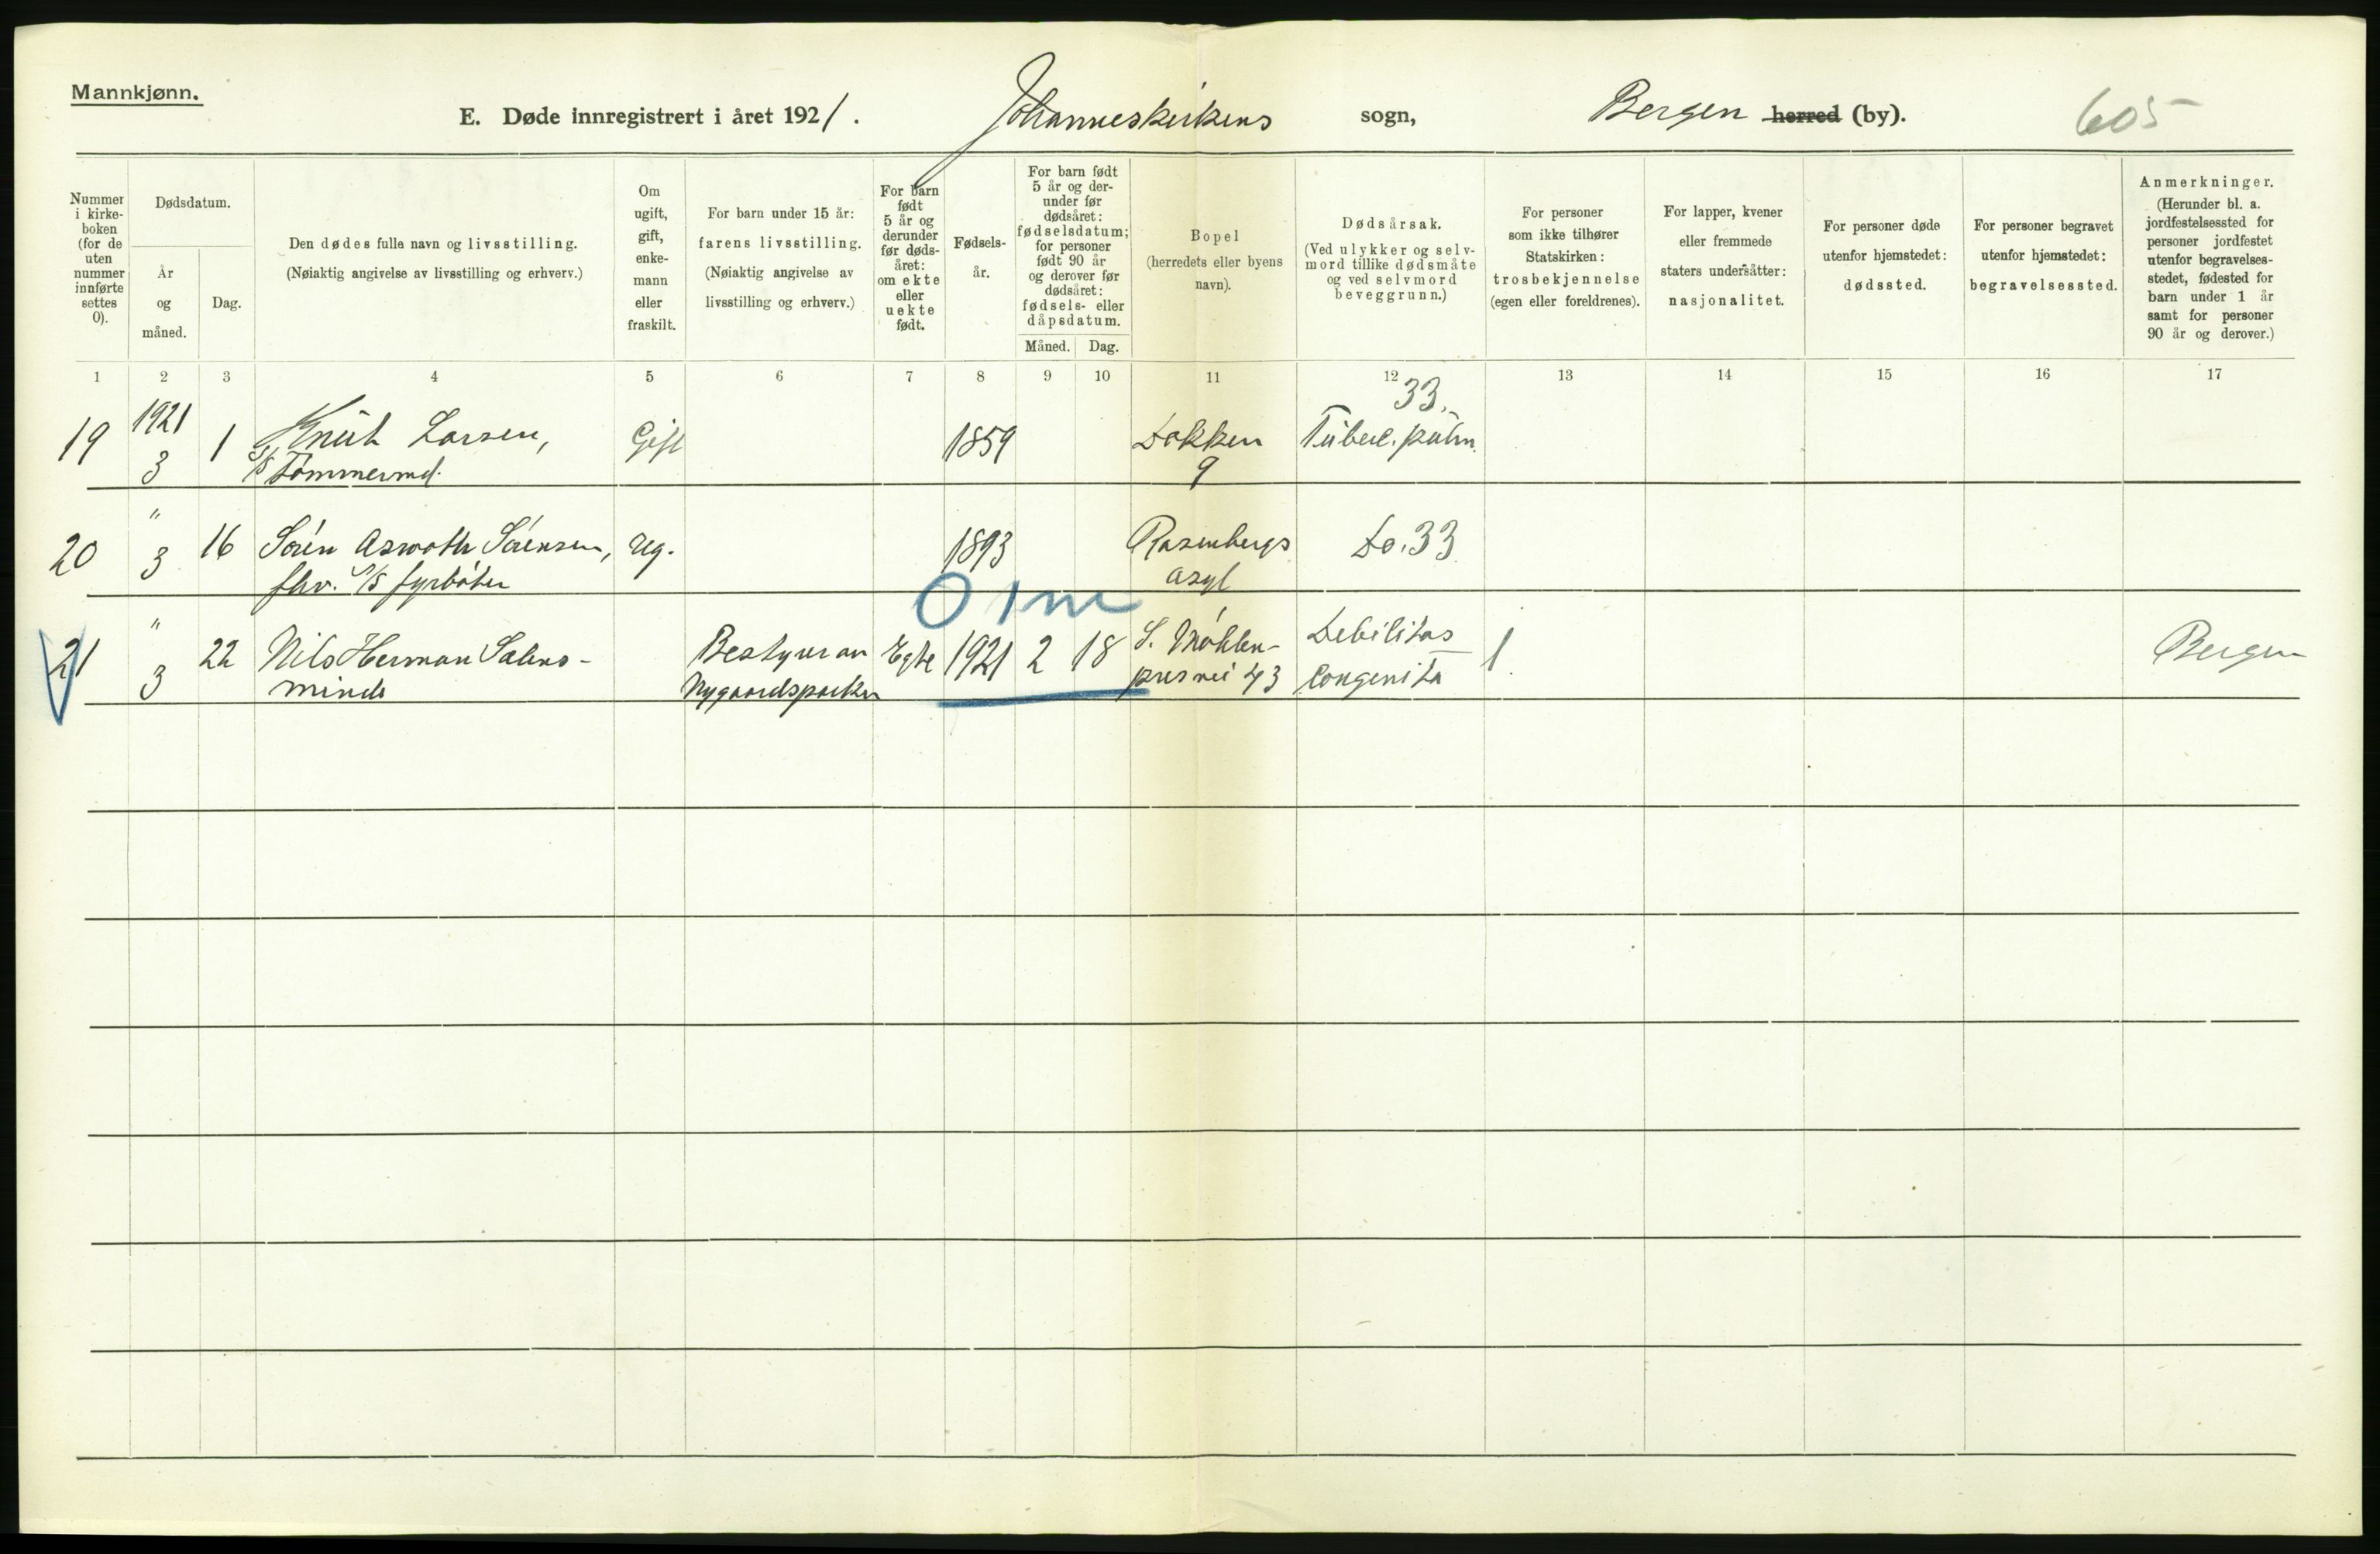 Mannkjønn.
E. Døde innregistrert i året 1921. Johanneskirkens sogn, Bergen herred (by). 605
Nummer
i kirke-
boken
(for de
uten
nummer
innførte
settes
0).
Dødsdatum.
År
og
måned.
Dag.
Den dødes fulle navn og livsstilling.
(Nøiaktig angivelse av livsstilling og erhverv.)
Om
ugift,
gift,
enke-
mann
eller
fraskilt.
For barn under 15 år:
farens livsstilling.
(Nøiaktig angivelse av
livsstilling og erhverv.)
For barn
født
5 år og
derunder
før døds-
året:
om ekte
eller
uekte
født.
Fødsels-
år.
For barn født
5 år og der-
under før
dødsåret:
fødselsdatum;
for personer
født 90 år
og derover før
dødsåret:
fødsels- eller
dåpsdatum.
Måned. Dag.
Bopel
(herredets eller byens
navn).
Dødsårsak.
(Ved ulykker og selv-
mord tillike dødsmåte
og ved selvmord
beveggrunn.)
For personer
som ikke tilhører
Statskirken:
trosbekjennelse
(egen eller foreldrenes).
For lapper, kvener
eller fremmede
staters undersåtter:
nasjonalitet.
For personer døde
utenfor hjemstedet:
dødssted.
For personer begravet
utenfor hjemstedet:
begravelsessted.
Anmerkninger.
(Herunder bl. a.
jordfestelsessted for
personer jordfestet
utenfor begravelses-
stedet, fødested for
barn under 1 år
samt for personer
90 år og derover.)
1 2 3 4 5 6 7 8 9 10 11 12 13 14 15 16 17
1921 33.
19 3 1 Knut Larsen, Gift 1859 Dokken Tuberc. pulm.
S/S Tømmermd. 9
20 " 3 16 Sørén Asxxx Sörensen, ug. 1893 Rosenbergs Do. 33
fhv. S/S fyrböter asyl
0 1 m
21 " 3 22 Nils Herman Salms- Bestyrer av Egte 1921 2 18 S. Möhlen- Debilitas 1 Bergen
minde Nygaardsparken prisvei 43 Congenita